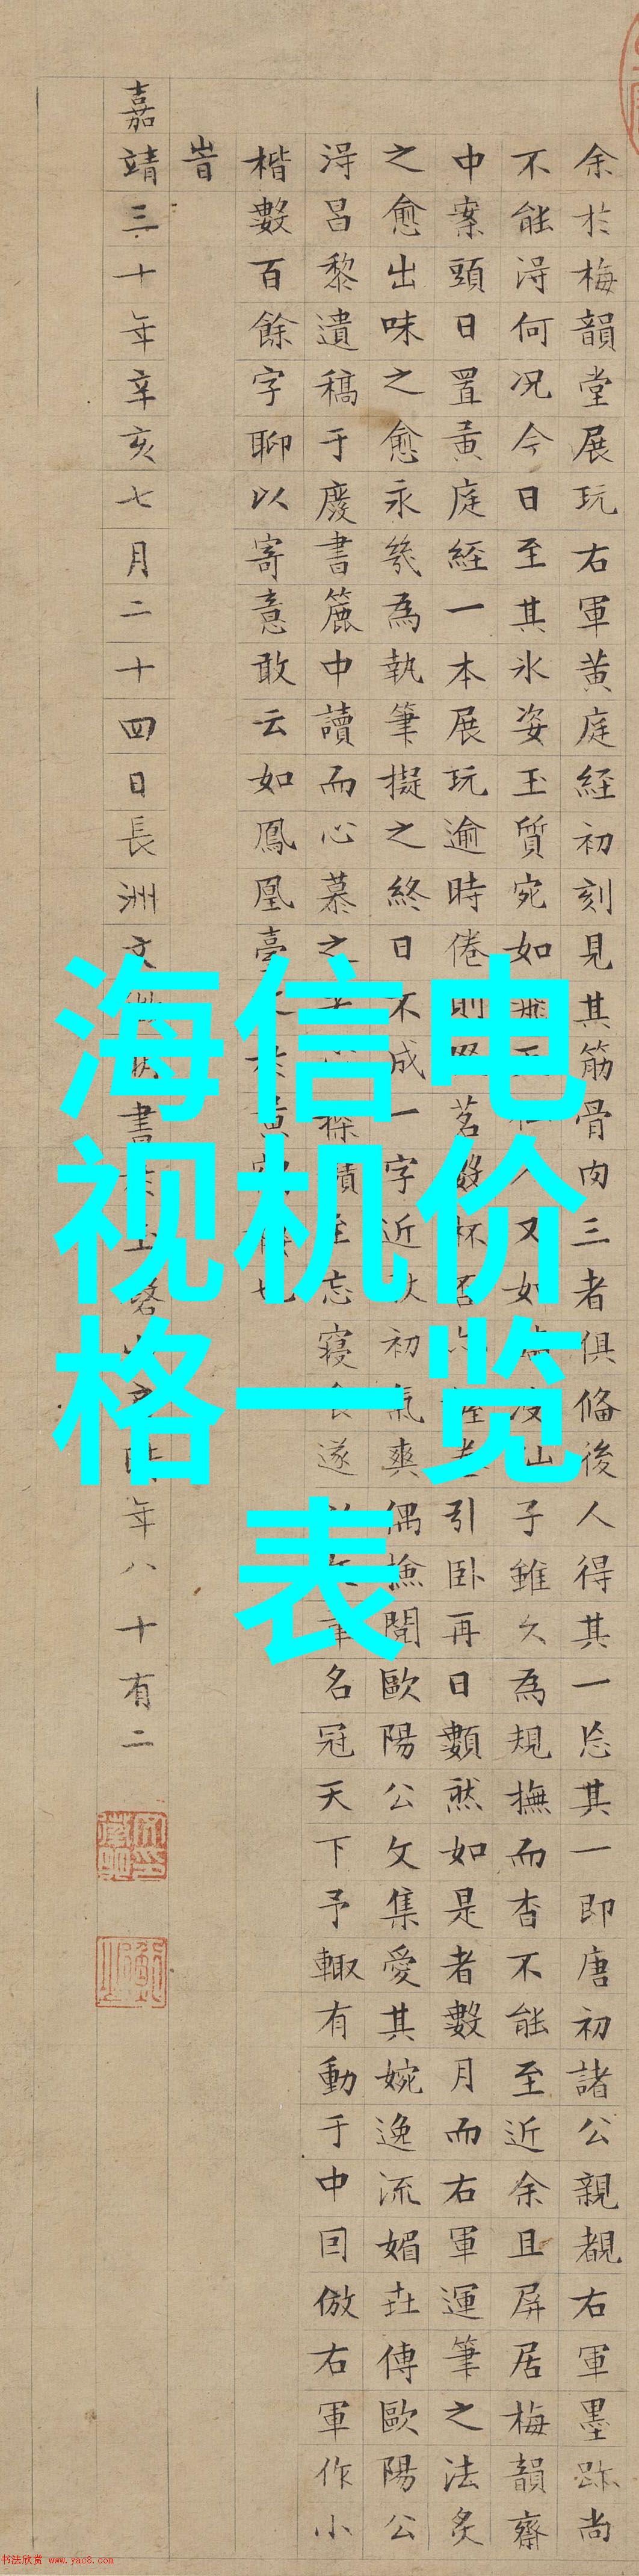 余於梅韻堂展玩右軍黄庭經初刻見其筋骨肉三者俱俻後人得其一忘其一即唐初諸公親覩右軍墨跡尚
不能淂何况今日至其氷姿玉質宛如飛又如子雖久為規撫而杳不能至近余且屏居梅韻齋
中案頭日置黄庭経一本展玩逾時倦則茗數杯引卧再日數然如是者數月而右軍運筆之法炙
之愈出味之愈永幾為執筆擬之終日不成一字近初氣爽偶撿閱歐陽公文集愛其婉逸流媚再傳歐陽公
淂昌黎遺稿于廢書簏中讀而心慕之至忘寢食遂名冠天下予輙有動于中因倣右軍作小
楷數百餘字聊以寄意敢云如鳳凰臺之於黄也
旹
嘉靖三十年辛亥七月二十四日長洲文書於玉磬山年八十有二
海信电
视机价
格一览
表
书法欣赏 www.yac8.com